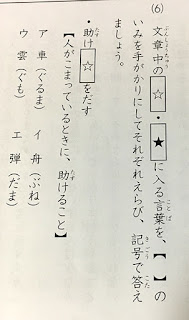 (6) 文章中の☆・★に入る言葉を、【　】の
いみを手がかりにしてそれぞれえらび、記号で答え
ましょう。
・助け☆をだす
【人がこまっているときに、助けること】
ア 車(ぐるま)　イ 舟(ぶね)
ウ 雲(ぐも)　エ 弾(だま)